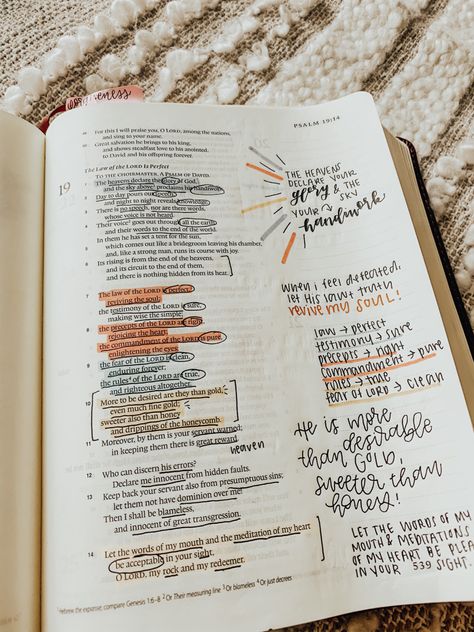 FORGIVENESS
PSALM 19:14
For this I will praise you, O LORD, among the nations,
and sing to your name.
Great salvation he brings to his king,
and shows steadfast love to his anointed,
to David and his offspring forever.
The Law of the LORD Is Perfect
19 TO THE CHOIRMASTER. A PSALM OF DAVID.
The heavens declare the glory of God,
and the sky above¹ proclaims his handiwork.
2 Day to day pours out speech,
and night to night reveals knowledge.
3 There is no speech, nor are there words,
whose voice is not heard.
4 Their voice² goes out through all the earth,
and their words to the end of the world.
In them he has set a tent for the sun,
5 which comes out like a bridegroom leaving his chamber,
and, like a strong man, runs its course with joy.
6 Its rising is from the end of the heavens,
and its circuit to the end of them,
and there is nothing hidden from its heat.
7 The law of the LORD is perfect,
reviving the soul;
the testimony of the LORD is sure,
making wise the simple;
8 the precepts of the LORD are right,
rejoicing the heart;
the commandment of the LORD is pure,
enlightening the eyes;
9 the fear of the LORD is clean,
enduring forever;
the rules⁴ of the LORD are true,
and righteous altogether.
10 More to be desired are they than gold,
even much fine gold;
sweeter also than honey
and drippings of the honeycomb.
11 Moreover, by them is your servant warned;
in keeping them there is great reward.
heaven
12 Who can discern his errors?
Declare me innocent from hidden faults.
13 Keep back your servant also from presumptuous sins;
let them not have dominion over me!
Then I shall be blameless,
and innocent of great transgression.
14 Let the words of my mouth and the meditation of my heart
be acceptable in your sight,
O LORD, my rock and my redeemer.
¹ Hebrew the expanse; compare Genesis 1:6–8 ² Or Their measuring line ³ Or blameless ⁴ Or just decrees
THE HEAVENS
DECLARE YOUR
glory & THE
SKY
YOUR
handiwork
when i feel defeated,
let His law & truth
revive my SOUL!
law → perfect
testimony → sure
precepts → right
commandment → pure
rules → true
fear of LORD → clean
He is more
desirable
than GOLD,
sweeter than
honey!
LET THE WORDS OF MY
MOUTH & MEDITATIONS
OF MY HEART BE PLEA
IN YOUR SIGHT.
539